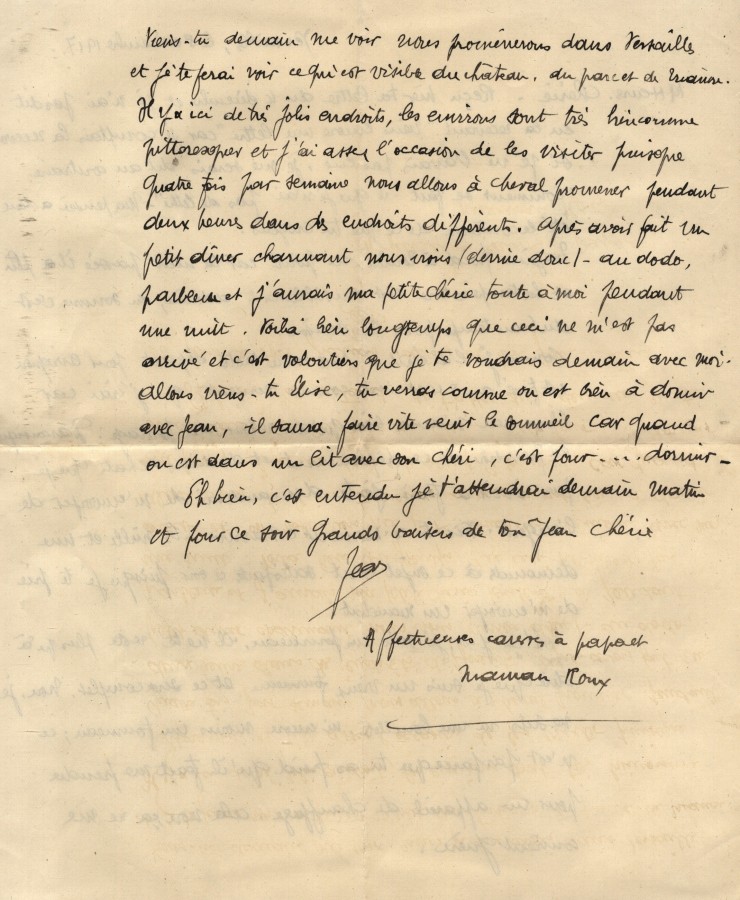 Viens-tu demain me voir nous promènerons dans Versailles
et je te ferai voir ce qui est visible du château, du parc et de
Il y a ici de très jolis endroits, les environs sont très bien comme
pittoresques et j'ai assez l'occasion de les visiter puisque
quatre fois par semaine nous allons à cheval promener pendant
deux heures dans des endroits différents. Après avoir fait un
petit dîner charmant nous irons (devine donc) - au dodo,
parbleu et j'aurais ma petite chérie toute à moi pendant
une nuit. Voilà bien longtemps que ceci ne m'est pas
arrivé et c'est volontiers que je te voudrais demain avec moi.
allons viens-tu Elise, tu verras comme on est bien à dormir
avec Jean, il saura faire vite venir le sommeil car quand
on est dans un lit avec son chéri, c'est pour .... dormir -
Eh bien, c'est entendu je t'attendrai demain matin
et pour ce soir grands baisers de ton Jean chéri
Jean
Affectueuses caresses à papa et
Maman Roux